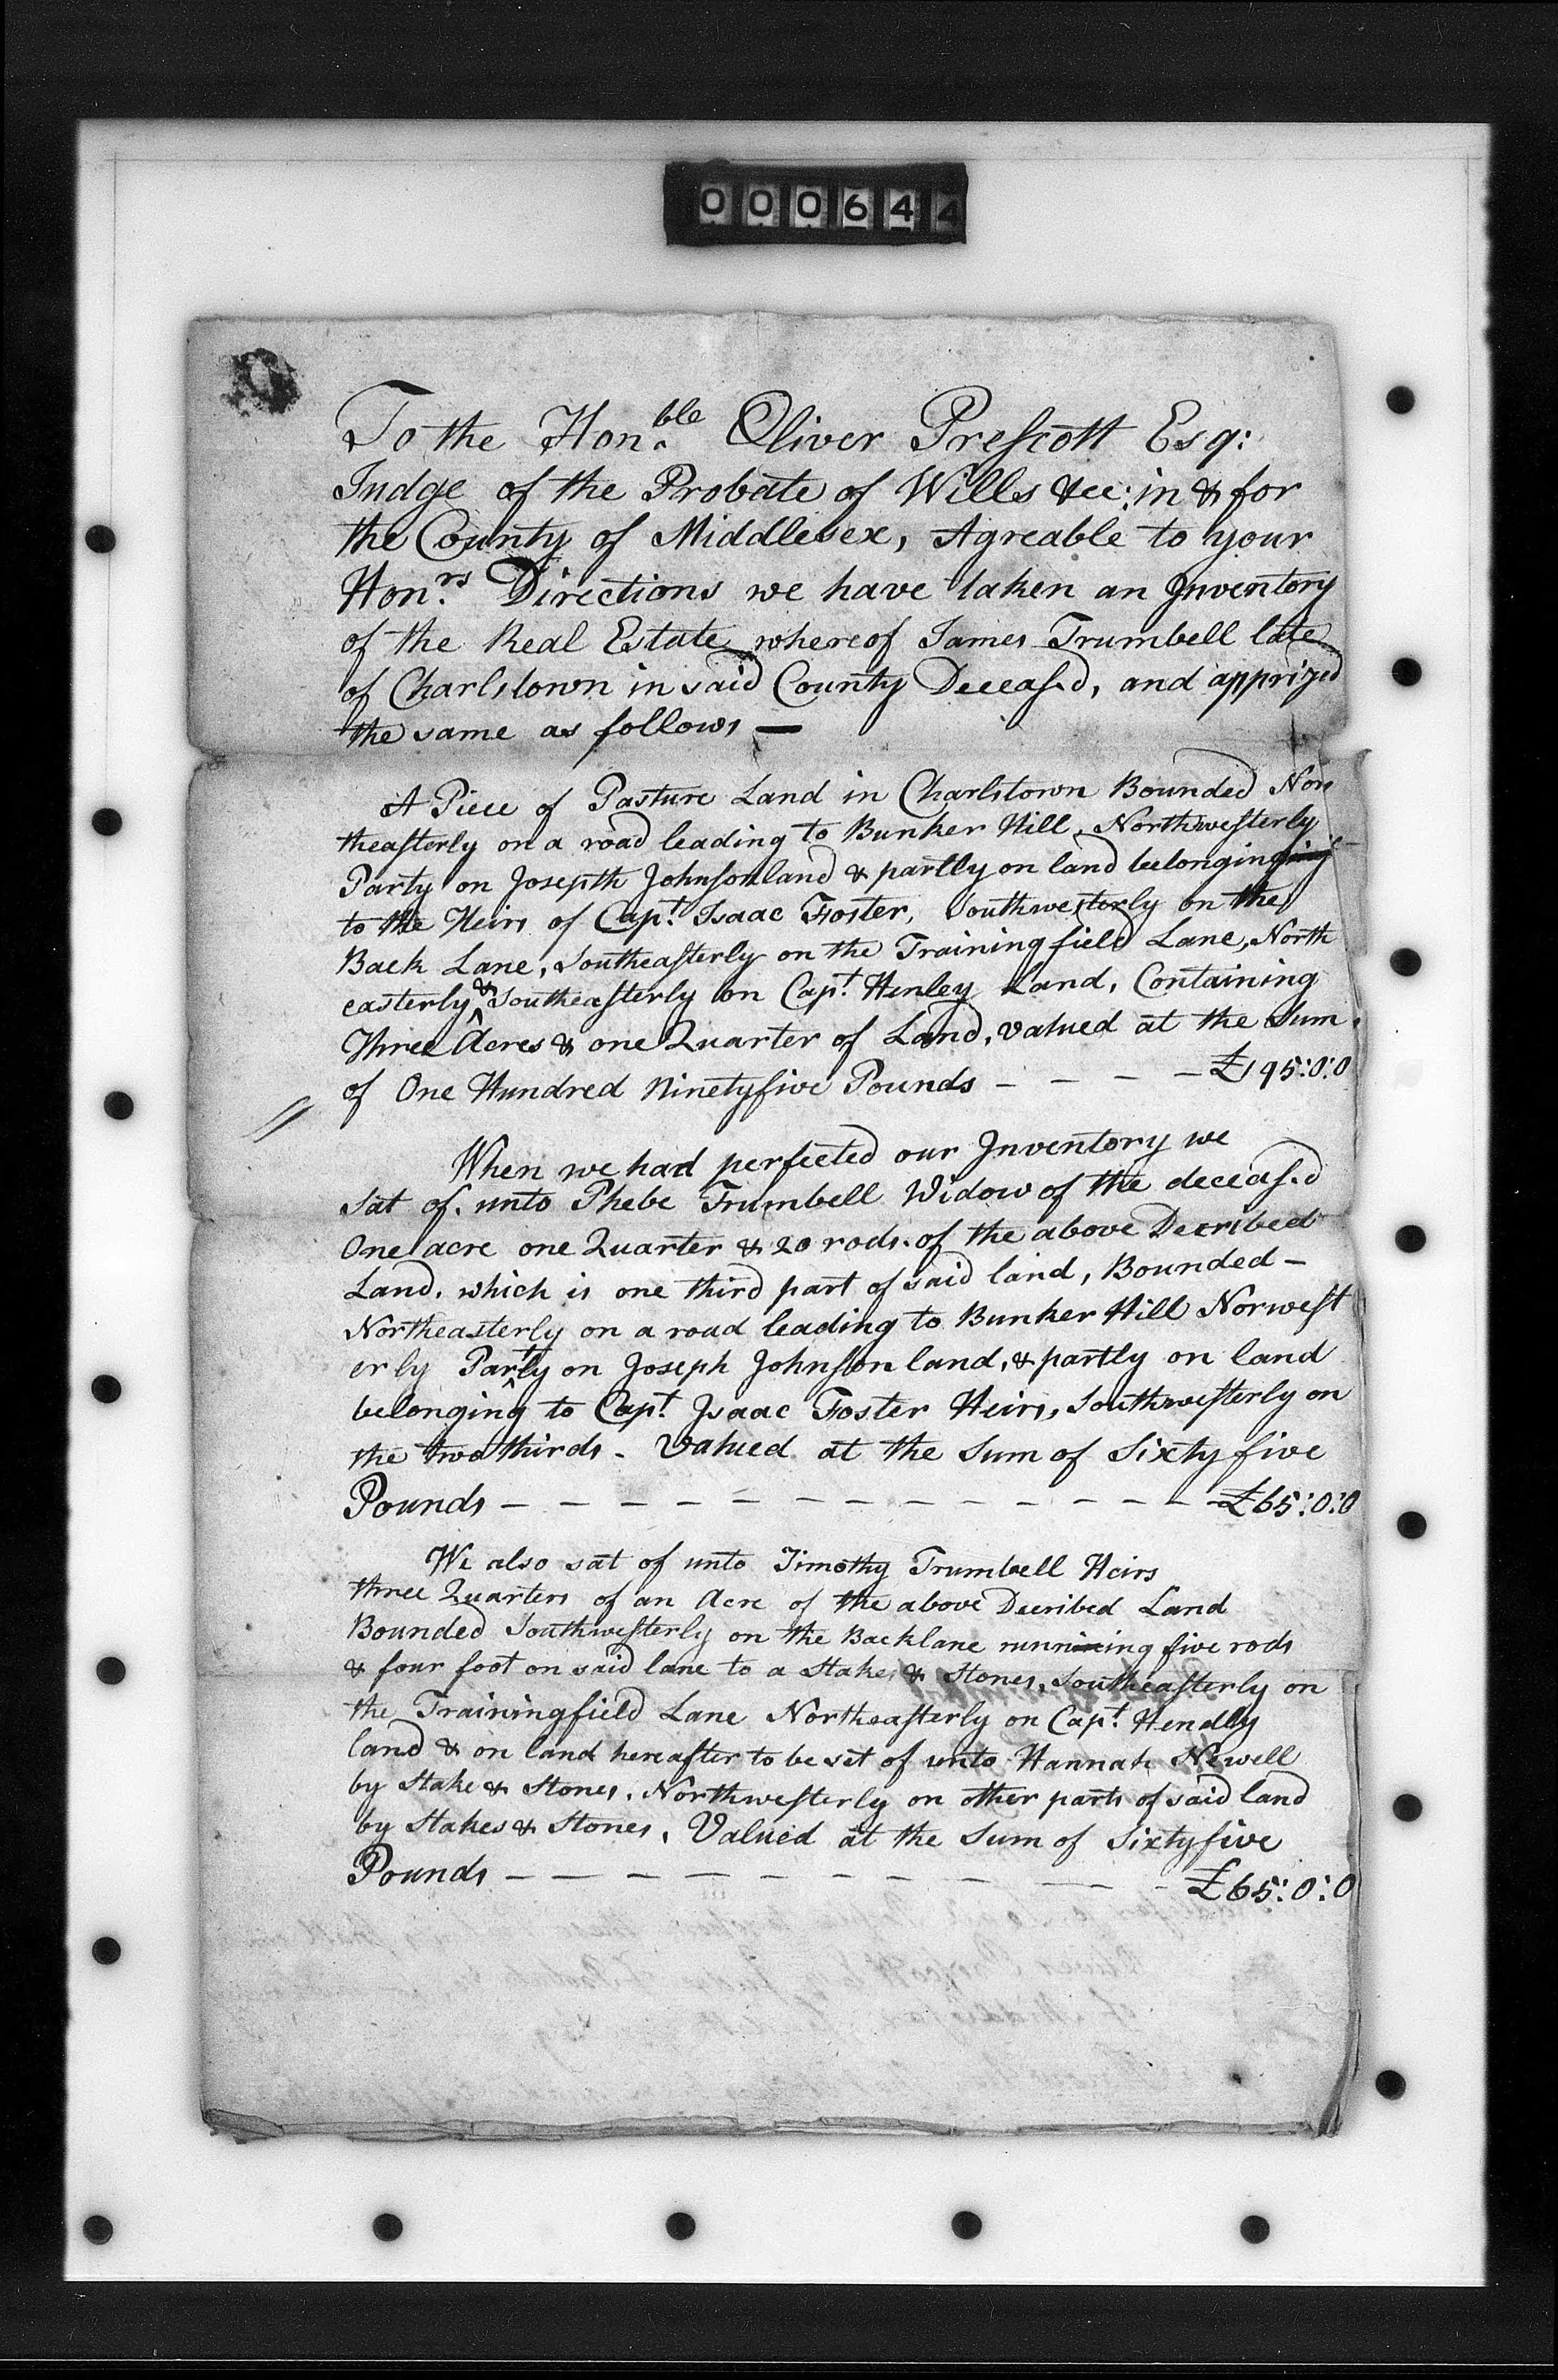 000644
To the Hon.ble Oliver Prescott Esq:
Judge of the Probate of Wills &cc: in & for
the County of Middlesex, Agreable to your
Hon.rs Directions we have taken an Inventory
of the Real Estate whereof James Trumbell late
of Charlstown in said County Deceasd, and apprized
the same as follows —
A Piece of Pasture Land in Charlstown Bounded Nor
theasterly on a road leading to Bunker Hill, Northwesterly
Party on Josepth Johnson land & partly on land belonging
to the Heirs of Capt. Isaac Foster, Southwesterly on the
Back Lane, Southeasterly on the Training field Lane, North
easterly & Southeasterly on Capt. Henley Land, Containing
Three Acres & one Quarter of Land, valued at the Sum
of One Hundred Ninetyfive Pounds - - - - £195:0:0
When we had perfected our Inventory we
Sat of. unto Phebe Trumbell Widow of the deceasd
One acre one Quarter & 20 rods. of the above Decribed
Land, which is one third part of said land, Bounded -
Northeasterly on a road leading to Bunker Hill Norwest
erly Partly on Joseph Johnson land, & partly on land
belonging to Capt. Isaac Foster Heirs, Southwesterly on
the two thirds - Valued at the Sum of Sixty five
Pounds - - - - - - - - - - - - - £65:0:0
We also sat of unto Timothy Trumbell Heirs
three Quarters of an Acre of the above Decribed Land
Bounded Southwesterly on the Backlane running five rods
& four foot on said lane to a Stake, & Stones, Southeasterly on
the Trainingfield Lane Northeasterly on Capt. Hendly
land & on land hereafter to be set of unto Hannah Newell
by Stake & Stones, Northwesterly on other parts of said land
by Stakes & Stones, Valued at the Sum of Sixtyfive
Pounds - - - - - - - - - - - - £65:0:0